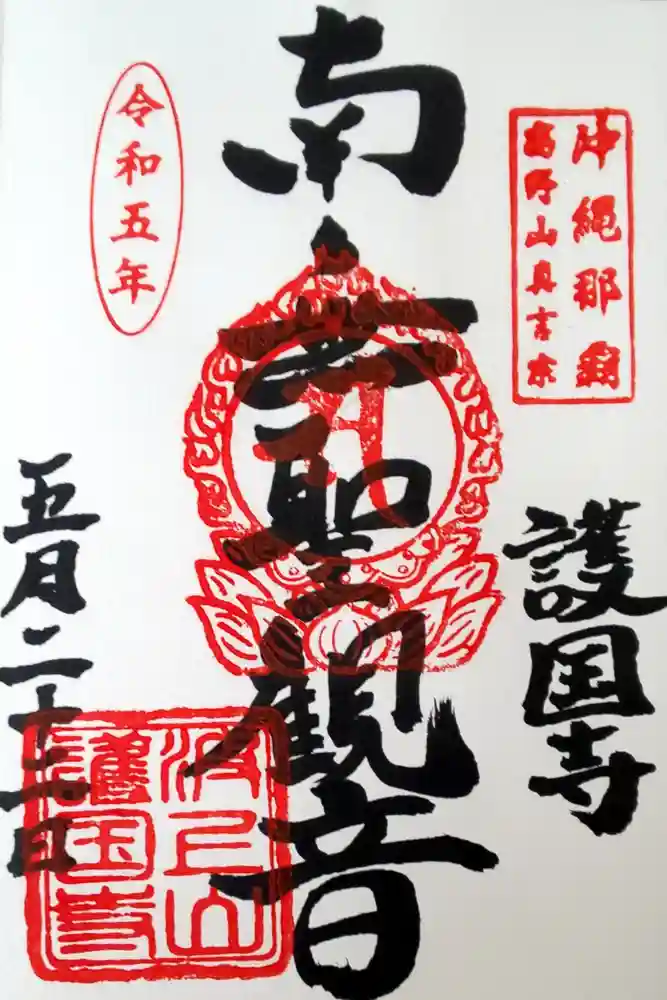 沖縄那覇
高野山真言宗
護国寺
南無聖観音
令和五年
五月二十三日
波上山
護国寺